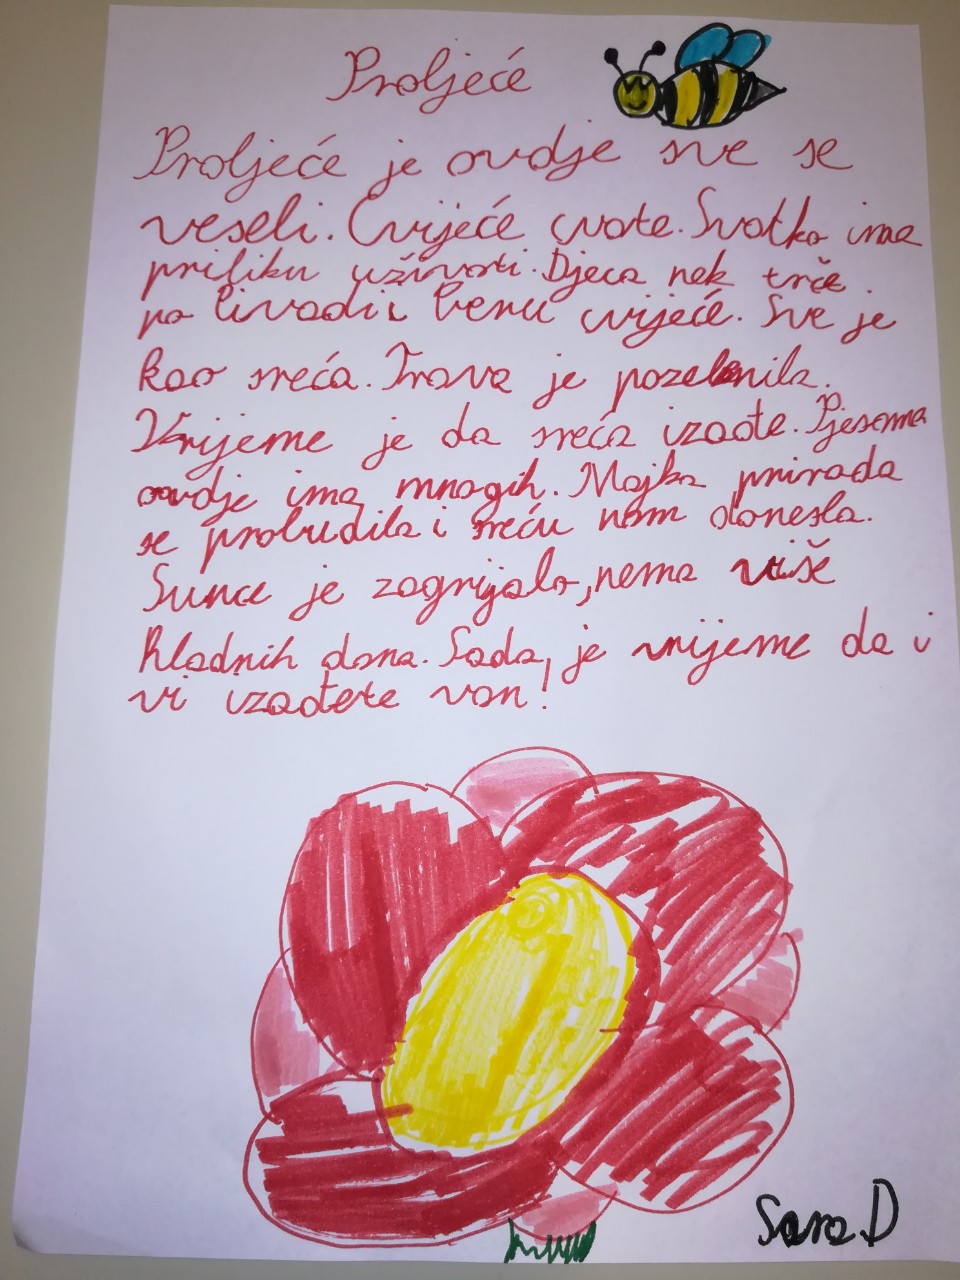 Proljeće
Proljeće je ovdje sve se
veseli. Cvijeće cvate. Svatko ima
priliku uživati. Djeca nek trče
po livadi i beru cvijeće. Sve je
kao sreća. Trava je pozelenila.
Vrijeme je da sreća izađe. Pjesama
ovdje ima mnogih. Majka priroda
se probudila i sreću nam donesla.
Sunce je zagrijalo, nema više
hladnih dana. Sada, je vrijeme da i
vi izađete van!
Sara D